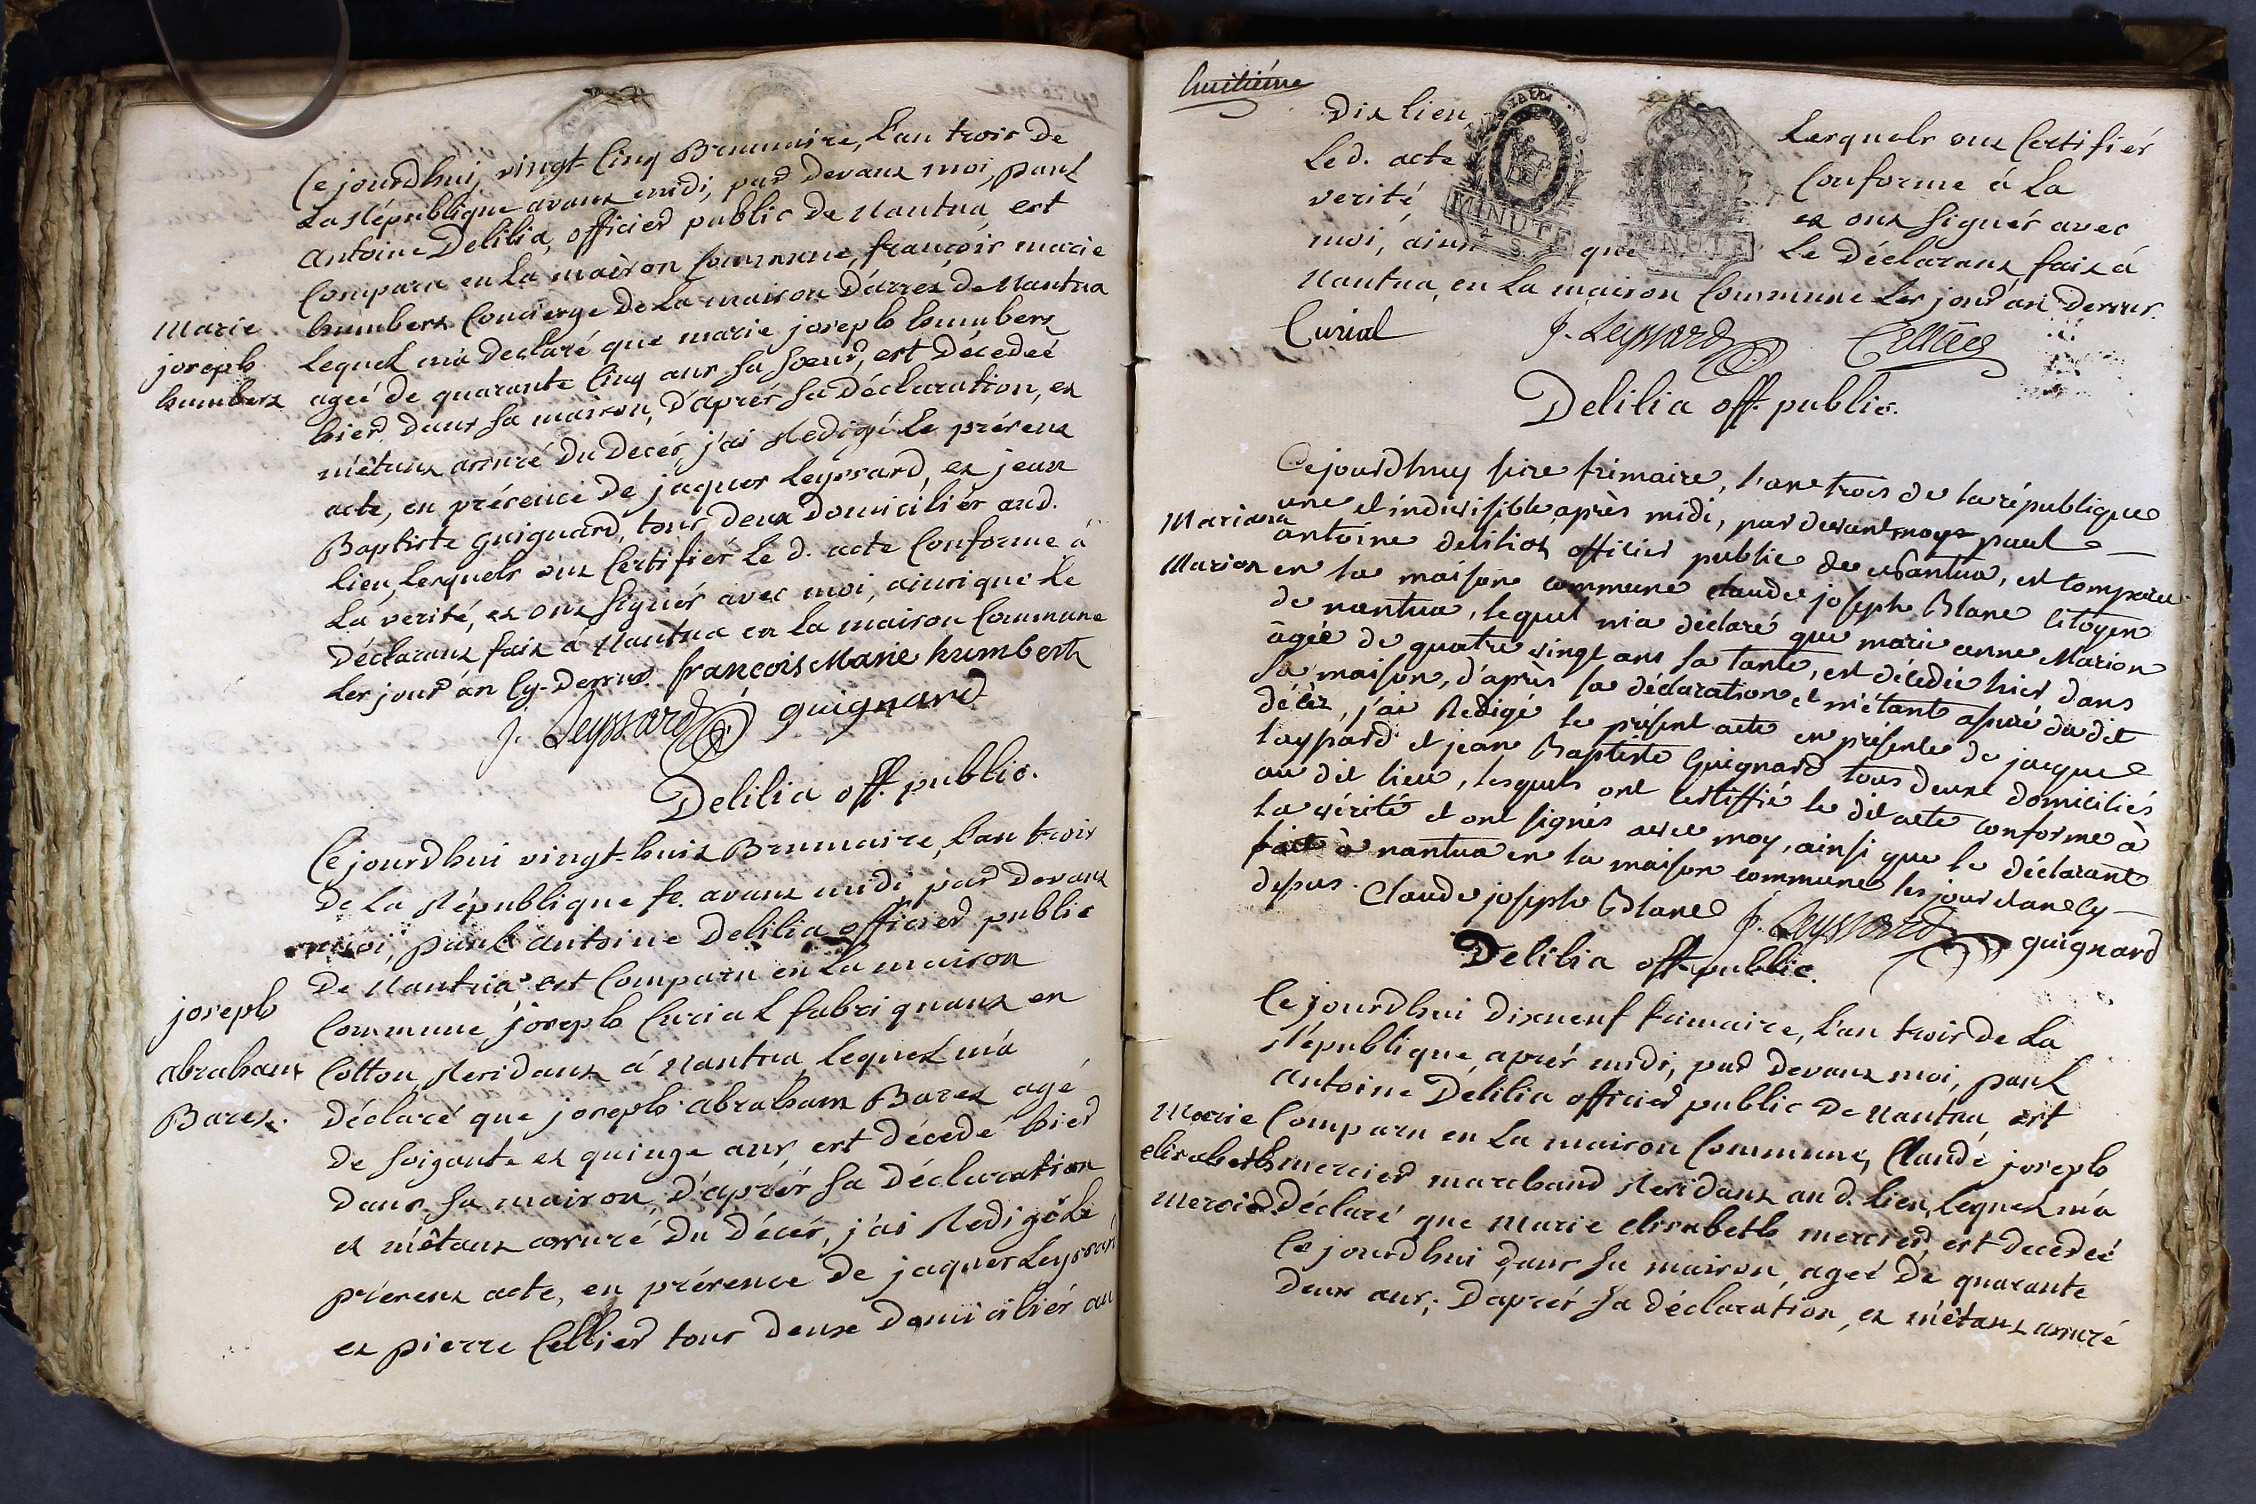 Ce jourdhui, vingt-Cinq Brumaire, L'an trois de
La République avant midi, par devant moi, paul
antoine Delilia, officier public de Nantua, est
Comparu en la maison Commune, françois marie
humbert Concierge de la maison d'arrêt de Nantua
Marie
joseph
humbert
Lequel m'a declaré que marie joseph humbert
ageé de quarante Cinq ans sa soeur, est décedeé
hier dans sa maison, d'après sa déclaration, et
m'étant assuré du decés, j'ai Redigé le présent
acte, en présence de jaques Leyssard, et jean
Baptiste guignard, tous deux domiciliés aud.
lieu, Lesquels ont Certifiés le d. acte Conforme à
La verité, et ont signés avec moi, ainsi que le
déclarant fait à Nantua en la maison Commune
Les jour & an Cy-dessus. françois Marie humbert
j. Leyssard guignard
Delilia off. public.
Ce jourdhui vingt-huit Brumaire, L'an trois
de La République fe. avant midi par devant
moi, paul antoine Delilia officier public
de Nantua est Comparu en la maison
Commune joseph Curial fabriquant en
joseph
abraham
Baret.
Cotton, Residant à Nantua, Lequel m'a
déclaré que joseph abraham Baret agé
de soizante et quinze ans, est décedé hier
dans sa maison, d'après sa déclaration
et m'étant assuré du décés, j'ai Redigé le
présent acte, en présence de jaques Leyssard
et pierre Cellier tous deux domiciliés au
huitiéme
dit lieu Lesquels ont Certifiés
Le d. acte Conforme à La
verité et ont signés avec
moi, ainsi que Le déclarant fait à
MINUTE
4 S
MINUTE
Nantua, en La maison Commune Les jour & an dessus.
Curial j. Leyssard Cellier
Delilia off. public.
Cejourdhuy seize frimaire, l'an trois de la république
une et indivisible après midi, par devant moy paul
Marianne
Marion
antoine delilia officier public de Nantua, est comparu
en la maison commune claude joseph Blanc Citoyen
de nantua, lequel m'a déclaré que marie anne Marion
âgée de quatre vingt ans sa tante, est décédée hier dans
sa maison, d'après sa déclaration et m'étant assuré dudit
décès, j'ai Redigé le présent acte en présence de jacque
layssard et jean Baptiste Guignard tous deux domiciliés
au dit lieu, lesquels ont certiffié le dit acte conforme à
la vérité et ont signés avec moy, ainsi que le déclarant
fait à nantua en la maison commune les jour et an cy
dessus. Claude joseph Blanc j. Leyssard guignard
Delilia off. public.
Ce jourdhui dix neuf frimaire, L'an trois de La
République, aprés midi, par devant moi, paul
antoine Delilia officier public de Nantua, est
Marie
elisabeth
mercier
Comparu en La maison Commune, Claude joseph
mercier marchand Residant au d. lieu, Lequel m'a
déclaré que Marie elisabeth mercier, est decedeé
Ce jourdhui dans sa maison, ageé de quarante
deux ans; D'aprés sa déclaration, et m'étant assuré